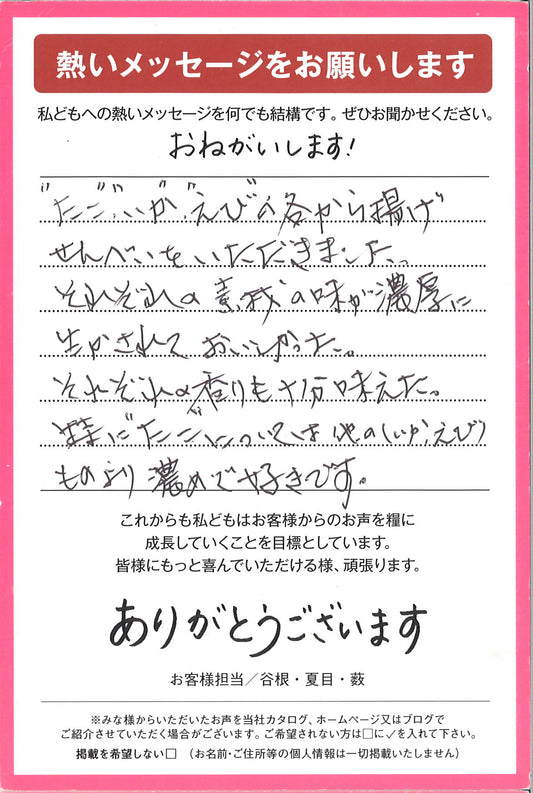 熱いメッセージをお願いします
私どもへの熱いメッセージを何でも結構です。ぜひお聞かせください。
おねがいします!
"たこ","いか","えび"の各から揚げ
せんべいをいただきました。
それぞれの素材の味が濃厚に
生かされて おいしかった。
それぞれの香りも十分味えた。
特に"たこ"については他の(いか,えび)
ものより 濃めで好きです。
これからも私どもはお客様からのお声を糧に
成長していくことを目標としています。
皆様にもっと喜んでいただける様、頑張ります。
ありがとうございます
お客様担当／谷根・夏目・薮
※みな様からいただいたお声を当社カタログ、ホームページ又はブログで
ご紹介させていただく場合がございます。ご希望されない方は□に✓を入れて下さい。
掲載を希望しない□ （お名前・ご住所等の個人情報は一切掲載いたしません）